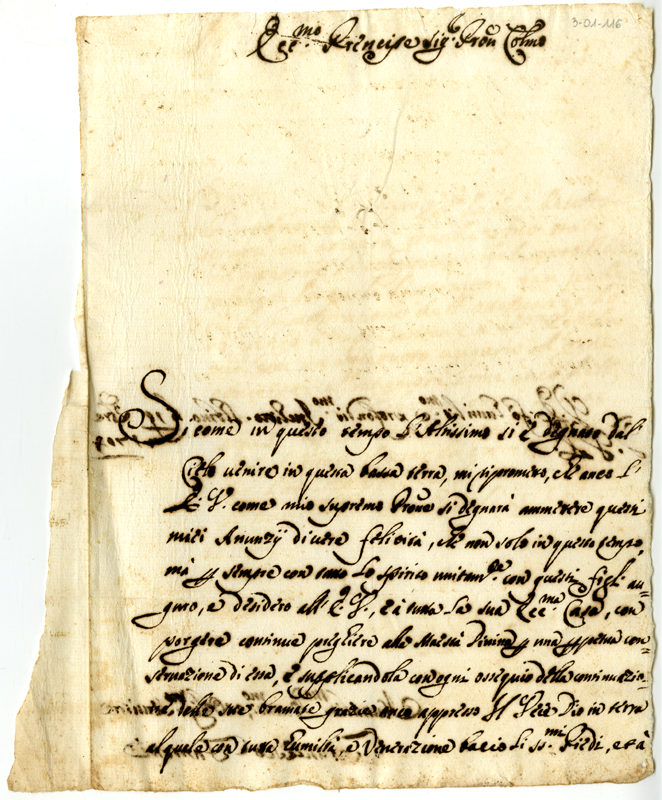 3-01-116
Ecc:mo Prencipe Sig:r Pron Colmo
Si come in questo tempo l'Altissimo si è degnato dal
Cielo venire in questa bassa terra, mi riprometto, che anco l'
E: V: come mio supremo Prone si degnarà ammettere questi
miei Anunzÿ di vere felicità, che non solo in questo tempo,
mà sempre con tutto lo spirito unitam:te con questi figli au=
guro, e desidero all'E: V:, e à tutta la sua Ecc:ma Casa, con
porgere continue preghiere alla Maestà Divina una con=
servazione di essa, e supplicandola con ogni ossequio della continuazio
ne delle sue bramate grazie anco appresso Il Vice Dio in terra
al quale con tutta humiltà, e Venerazione bacio li SS:mi Piedi, et à